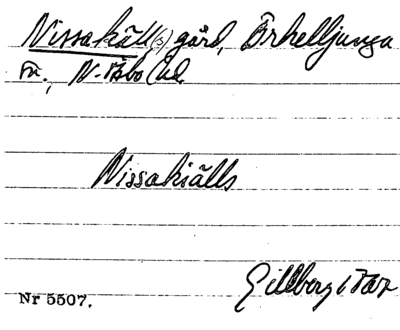 Nissakäll(s) gård, Örkelljunga
sn., N. Åsbo hd.
Nissakiälls
Gillberg 1767
Nr 5507.